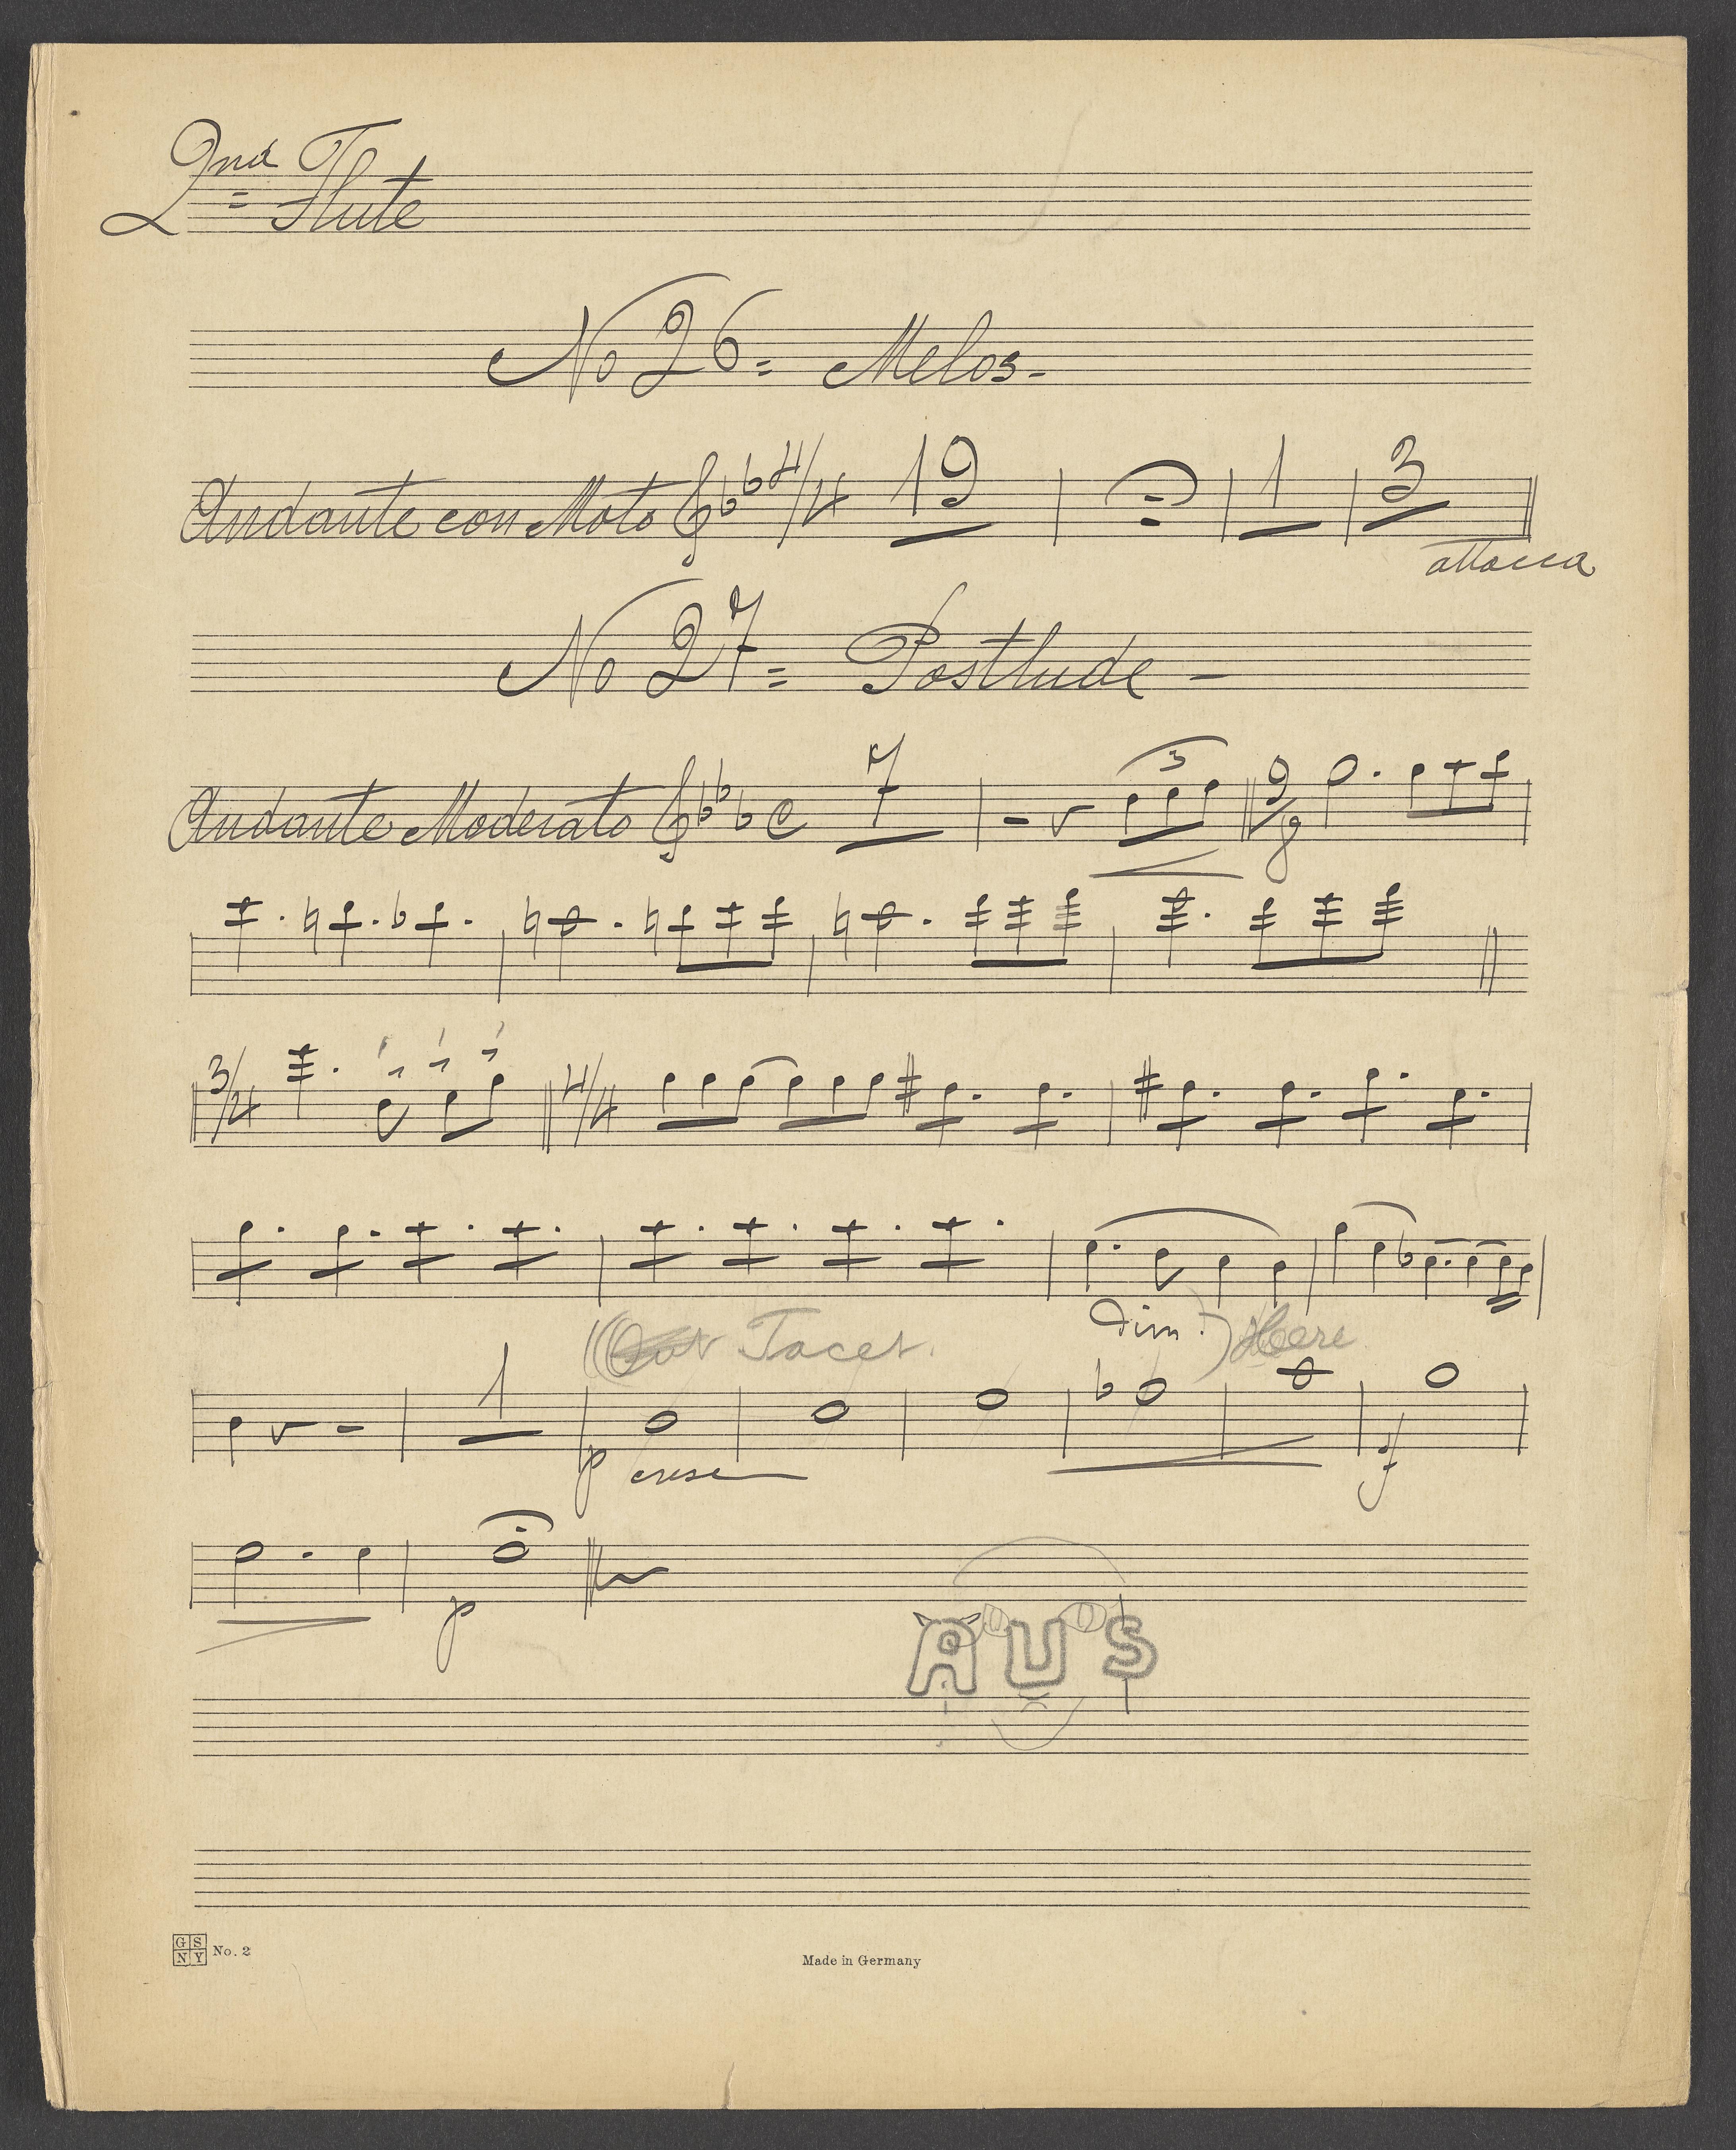 2nd Flute
No 26 = Melos -
Andante con Moto 4/4 19 1 3
attacca
No 27 = Postlude -
Andante Moderato C 7 3 9/8
3/4 4/4
dim.
Tacet. Here
1
p cresc f
p
AUS
GS
NY No. 2
Made in Germany